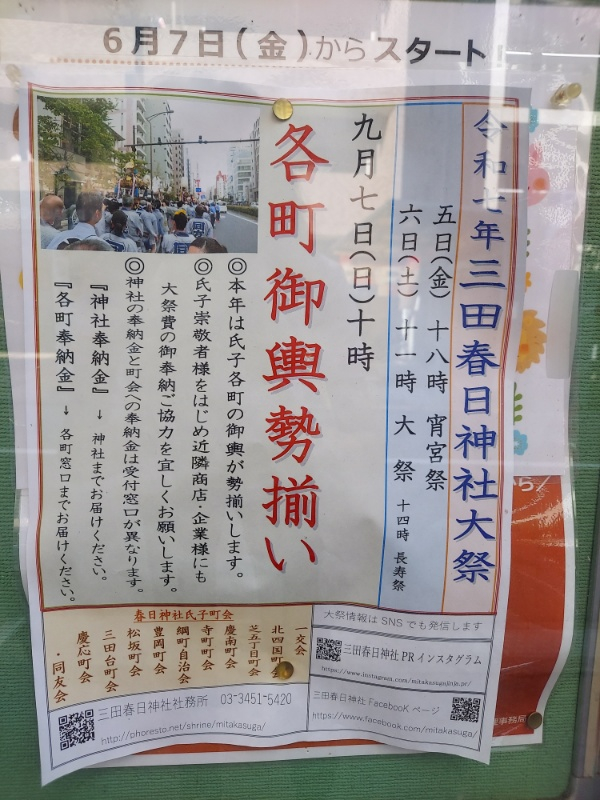 6月7日(金)からスタート!
令和七年三田春日神社大祭
五日(金) 十八時 宵宮祭
六日(土) 十一時 大祭 十四時 長寿祭
九月七日(日)十時
各町御輿勢揃い
◎本年は氏子各町の御輿が勢揃いします。
◎氏子崇敬者様をはじめ近隣商店・企業様にも
大祭費の御奉納ご協力を宜しくお願いします。
◎神社の奉納金と町会への奉納金は受付窓口が異なります。
『神社奉納金』→ 神社までお届けください。
『各町奉納金』→ 各町窓口までお届けください。
春日神社氏子町会
一交会
北四国町会
芝五丁目町会
慶南町会
寺町町会
綱町自治会
豊岡町会
松坂町会
三田台町会
慶応町会
・同友会
三田春日神社社務所 03-3451-5420
http://phoresto.net/shrine/mitakasuga/
大祭情報はSNSでも発信します
三田春日神社PRインスタグラム
三田春日神社Facebookページ
https://www.facebook.com/mitakasuga/
事務局